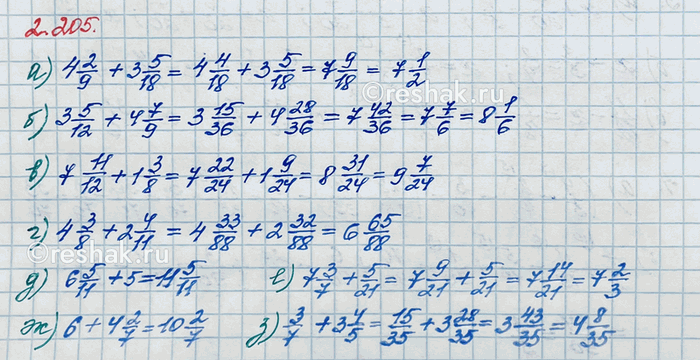 2.205.
а) 4 2/9 + 3 5/18 = 4 4/18 + 3 5/18 = 7 9/18 = 7 1/2
б) 3 5/12 + 4 7/9 = 3 15/36 + 4 28/36 = 7 42/36 = 7 7/6 = 8 1/6
в) 7 11/12 + 1 3/8 = 7 22/24 + 1 9/24 = 8 31/24 = 9 7/24
г) 4 3/8 + 2 4/11 = 4 33/88 + 2 32/88 = 6 65/88
д) 6 5/11 + 5 = 11 5/11 е) 7 3/7 + 5/21 = 7 9/21 + 5/21 = 7 14/21 = 7 2/3
ж) 6 + 4 2/7 = 10 2/7 з) 3/7 + 3 4/5 = 15/35 + 3 28/35 = 3 43/35 = 4 8/35
©reshak.ru
©reshak.ru